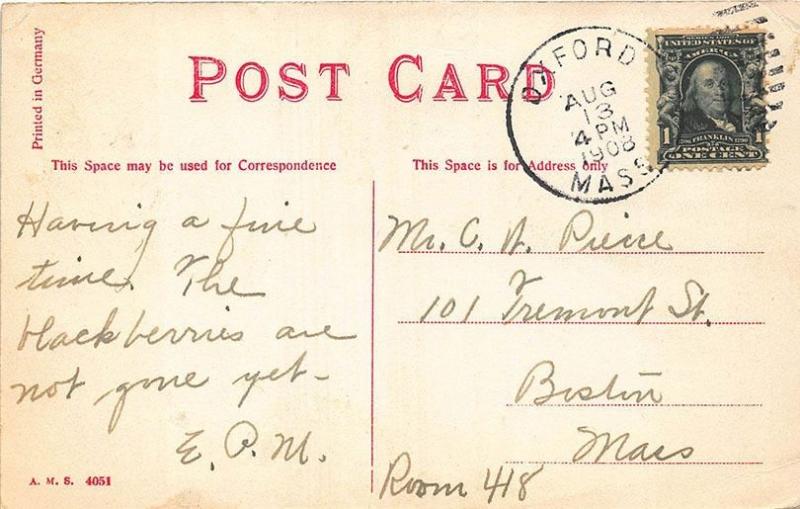 Printed in Germany
POST CARD
This Space may be used for Correspondence
This Space is for Address only
OXFORD
AUG
13
4 PM
1908
MASS
UNITED STATES OF
AMERICA
1
FRANKLIN
1
POSTAGE
ONE CENT
Having a fine
time. The
blackberries are
not gone yet-
E. P. M.
A. M. S. 4051
Mr. C. A. Pierce
101 Tremont St.
Boston
Mass
Room 418